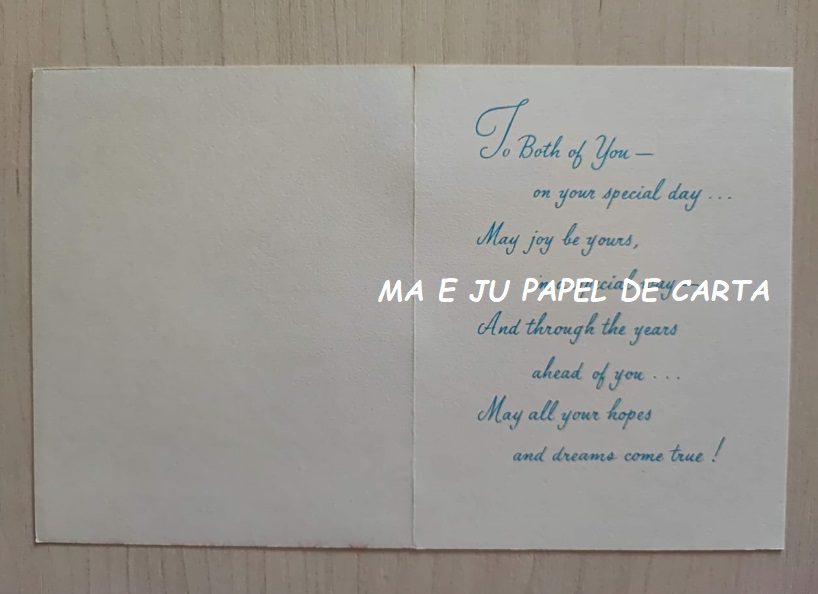 To Both of You —
on your special day . . .
May joy be yours,
in a special way —
MA E JU PAPEL DE CARTA
And through the years
ahead of you . . .
May all your hopes
and dreams come true !